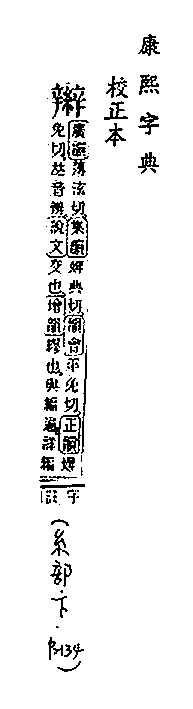 康熙字典
校正本
辮
廣韻薄泫切集韻婢典切韻會平免切正韻婢
免切𠀤音辨說文交也增韻繆也與編通詳編
字註
(糸部·下·P.134)